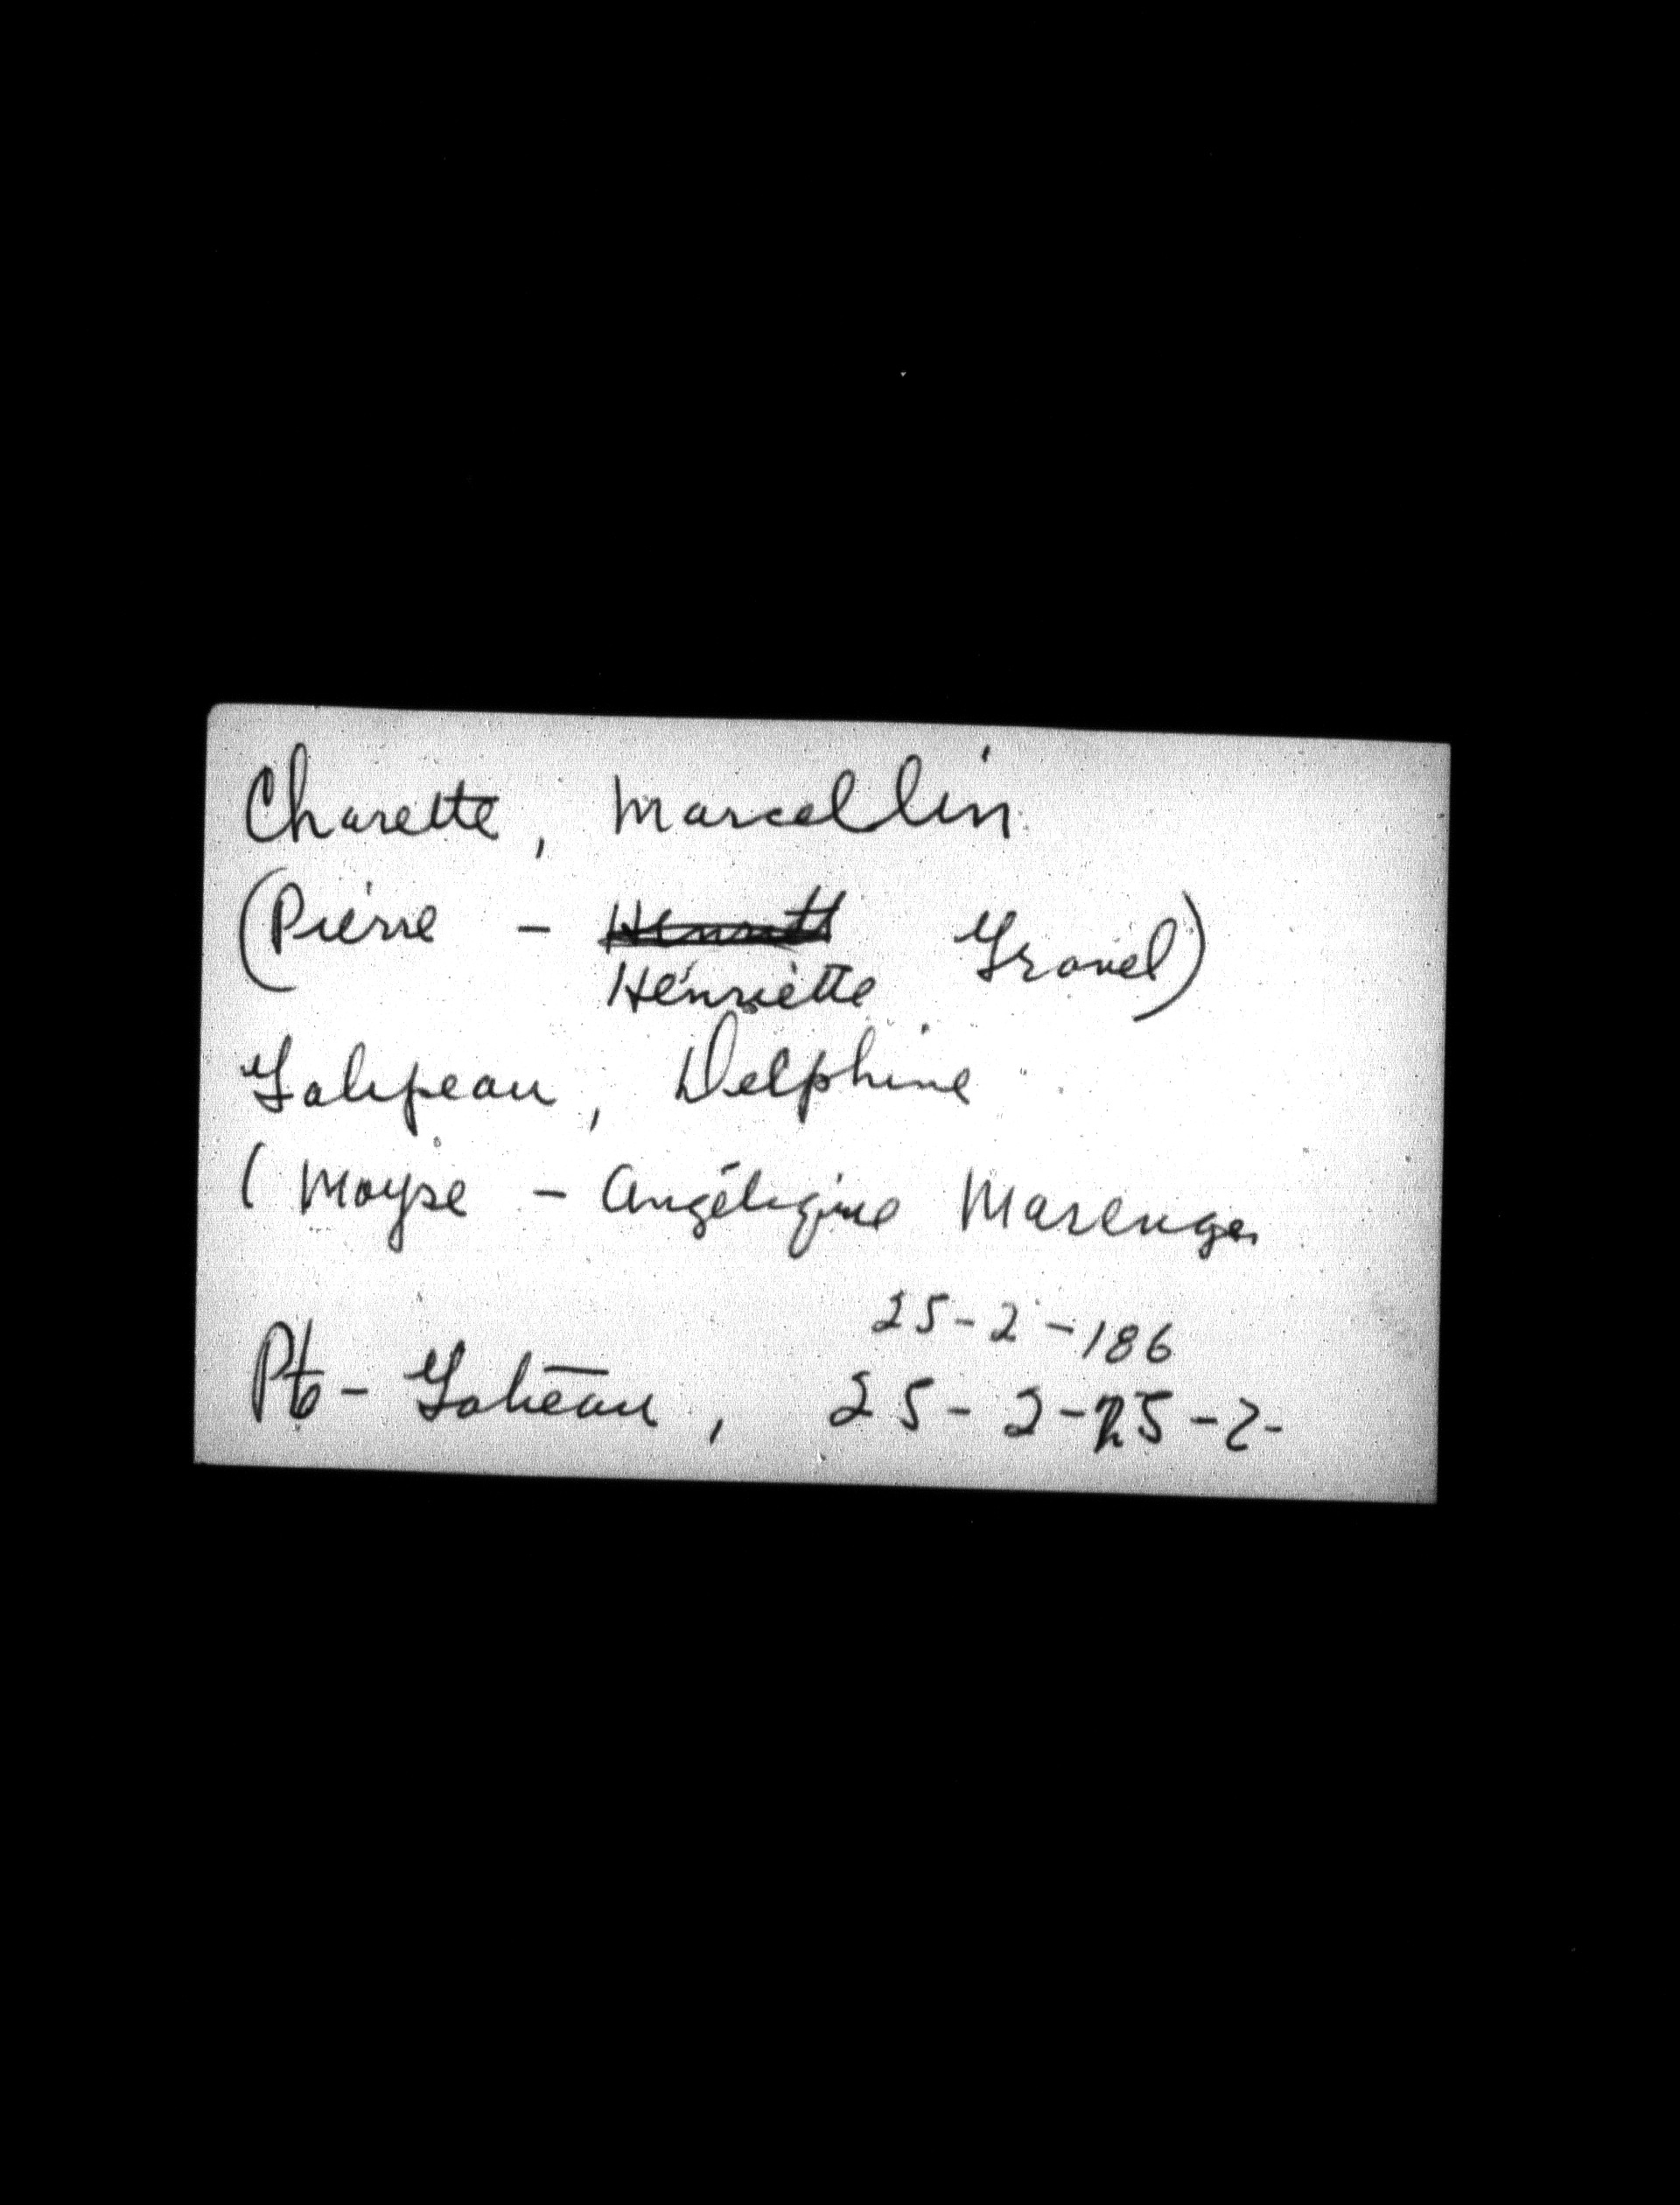 Charette, Marcellin
(Pierre - Henriette Gravel)
Galipeau, Delphine
(Moyse - Angélique Marenger
25-2-186
Pte-Gatineau, 25-2-25-2-